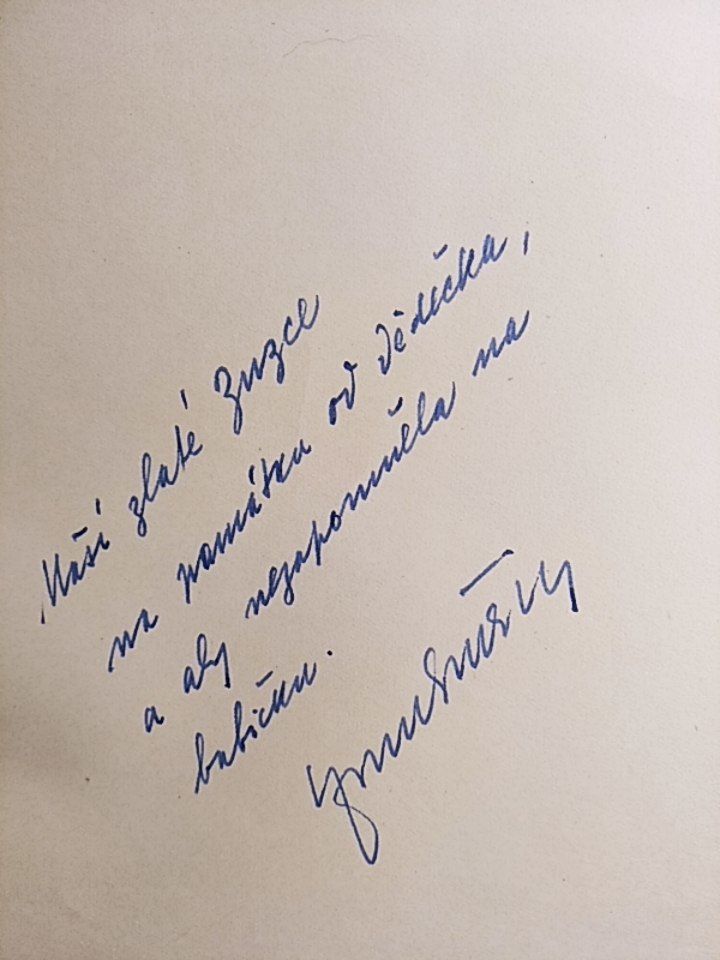 Naší zlaté Zuzce
na památku od dědečka,
a aby nezapomněla na
babičku.